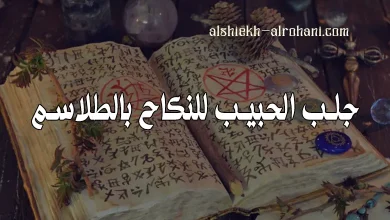 alshiekh-alrohani.com
جلب الحبيب للنكاح بالطلاسم